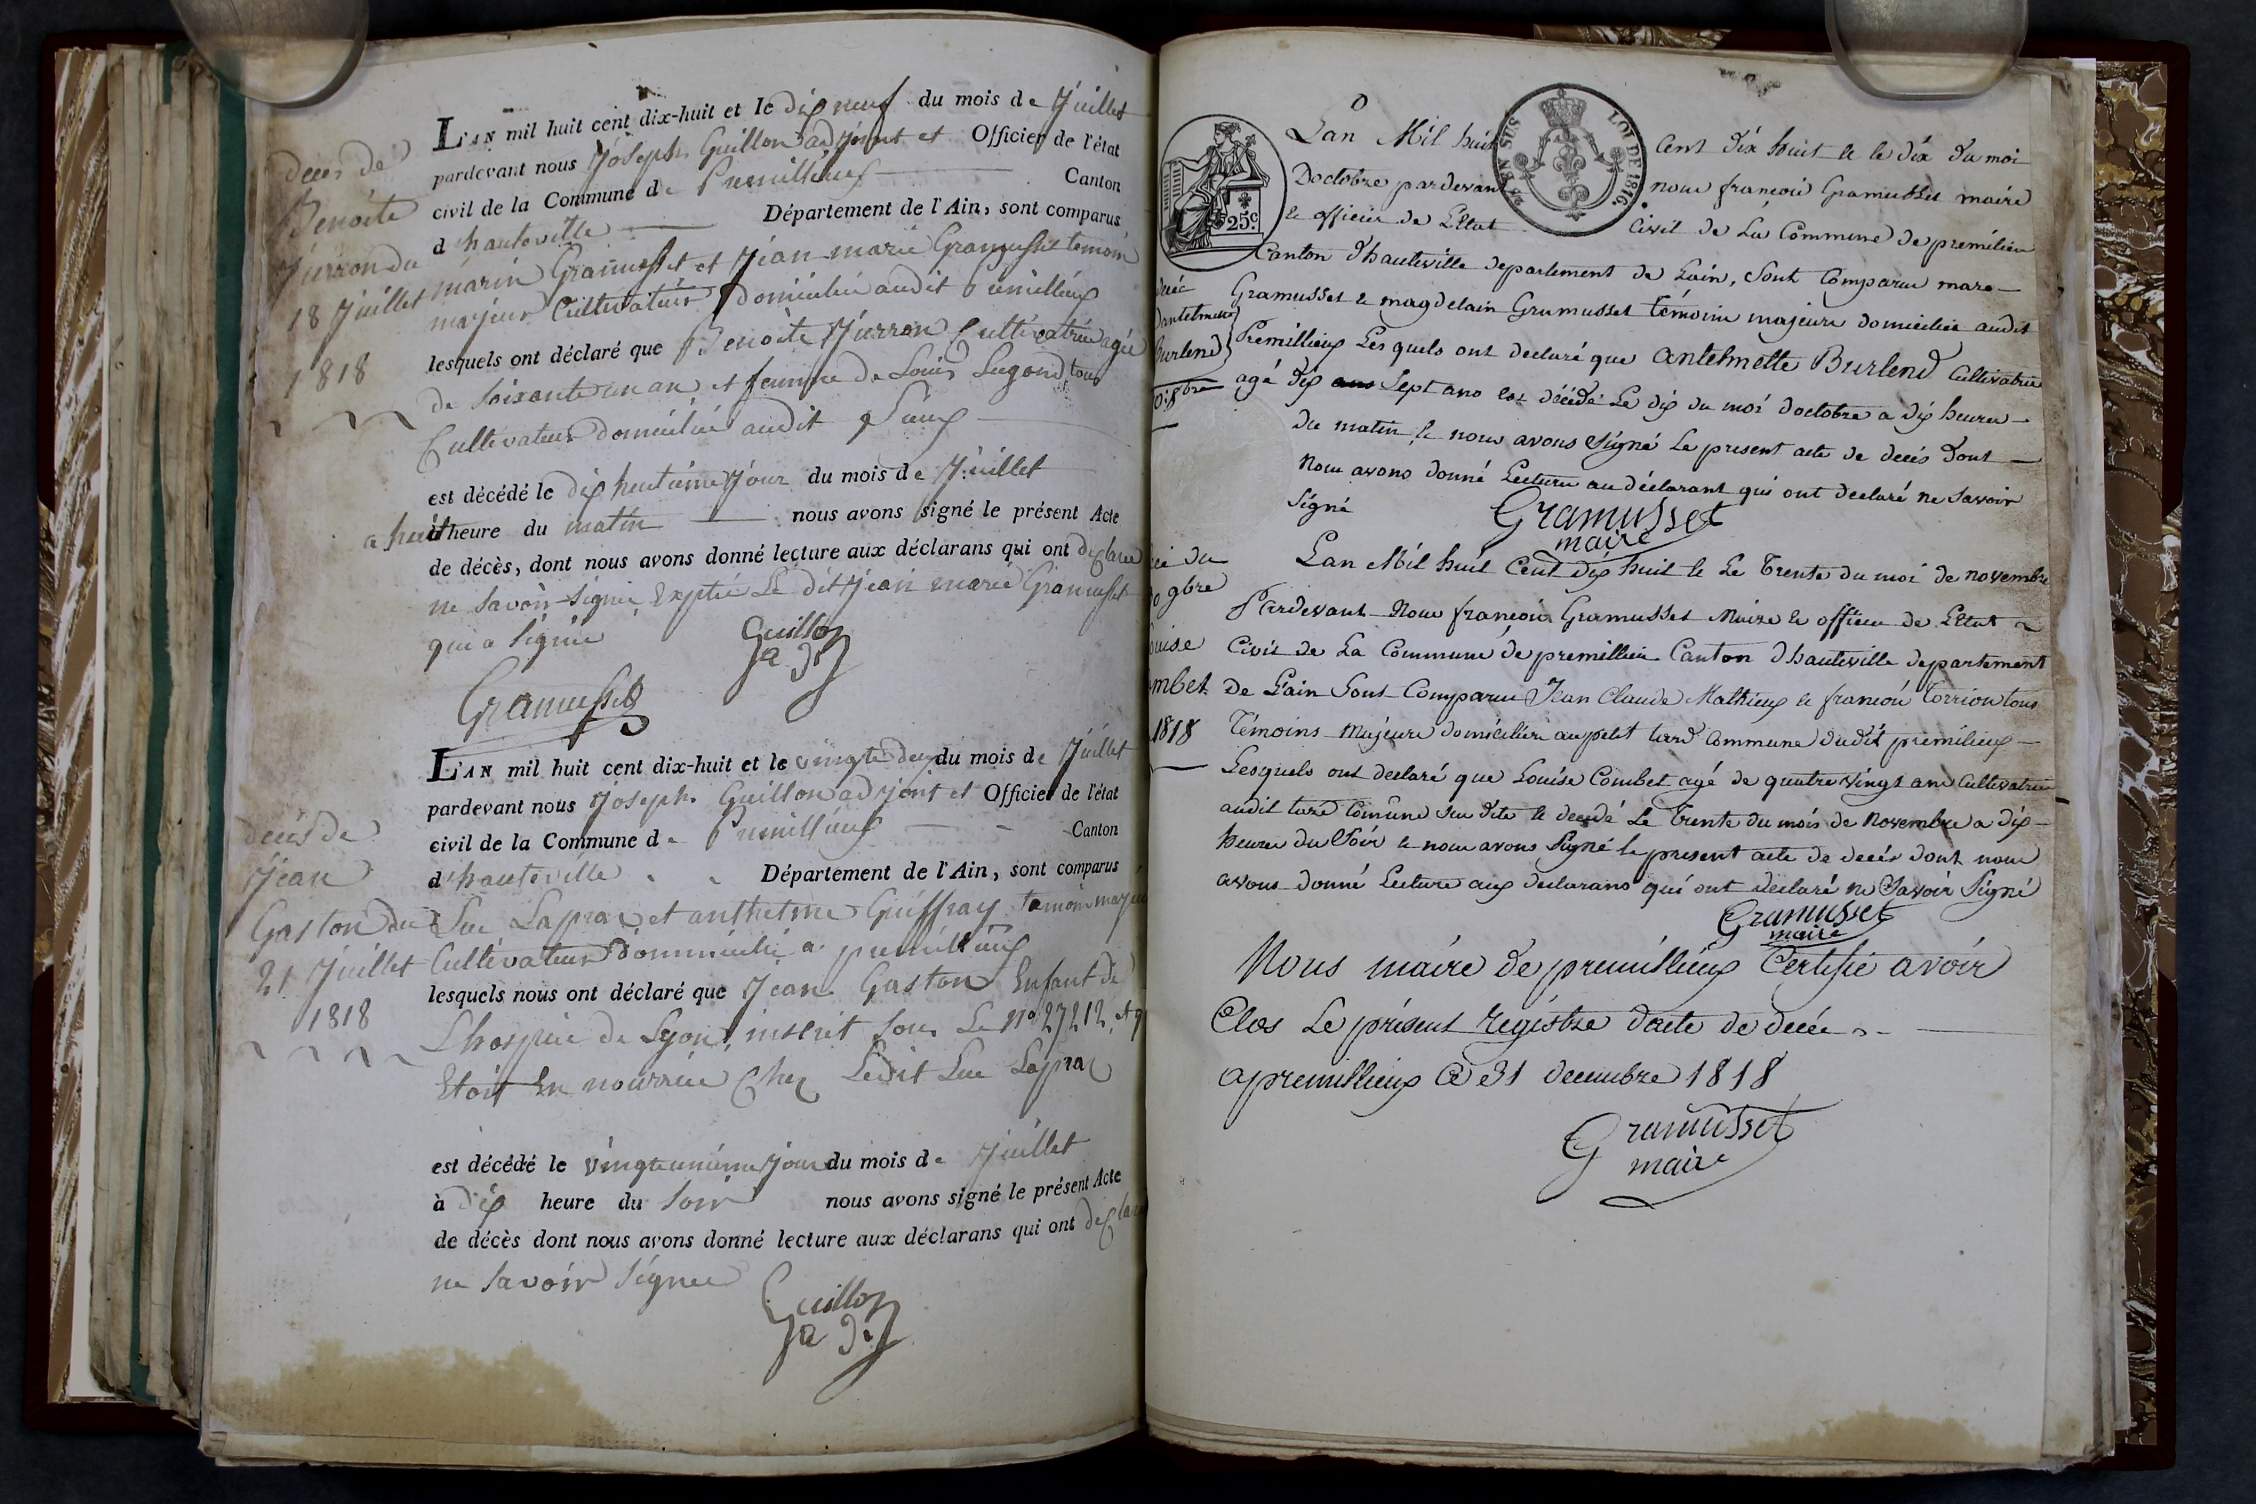 L'AN mil huit cent dix-huit et le dix neuf du mois de Juillet
pardevant nous Joseph Guillon adjoint et Officier de l'état
civil de la Commune de Premillieux Canton
d'hauteville Département de l'Ain, sont comparus
marin Gramusset et Jean marie Gramusset temoin
majeur Cultivateur domicilié audit Premillieux
lesquels ont déclaré que Benoite Jurron Cultivatrice agée
de soixante un an et femme de Louis Sugond tous
Cultivateur domicilié audit
est décédé le dix huitième Jour du mois de Juillet
a huit heure du matin nous avons signé le présent Acte
de décès, dont nous avons donné lecture aux déclarans qui ont declaré
ne savoir signé Exptié Le dit Jean marie Gramusset
qui a signé
Guillon
adj
Gramusset
deces de
Benoite
Jurron du
18 Juillet
1818
L'AN mil huit cent dix-huit et le vingte deux du mois de Juillet
pardevant nous Joseph Guillon adjoint et Officier de l'état
civil de la Commune de Premillieux Canton
d'hauteville Département de l'Ain, sont comparus
Luc Lapra et anthelme Guiffray temoin majeur
Cultivateur dommicilié a premillieux
lesquels nous ont déclaré que Jean Gaston Enfant de
Lhospice de Lyon, inscrit sous Le N° 27212, et q
Etoit En nourrice Chez Ledit Luc Lapra
est décédé le vingtunieme Jour du mois de Juillet
à dix heure du soir nous avons signé le présent Acte
de décès dont nous avons donné lecture aux déclarans qui ont declaré
ne savoir signer
Guillon
adj
decès de
Jean
Gaston du
21 Juillet
1818
24 EN SUS
LOI DE 1816.
25c
Lan Mil huit Cent dix huit & le dix du moi
Doctobre pardevant nous françois Gramusset maire
& officier de Letat Civil de La Commune de premilieu
Canton d'hauteville departement de Lain, sont Comparu marc
Gramusset & magdelain Gramusset témoins majeurs domicilié audit
Premillieux Les quels ont declaré que antelmette Burlend Cultivatrice
agé dix ans sept ans est décédé Le dix du moi doctobre a dix heures
du matin & nous avons signé Le present acte de decés dont
Nous avons donné Lecture au déclarant qui ont declaré ne savoir
signé
Gramusset
maire
decéc
Dantelmette
Burlend
8bre
Lan Mil huit Cent dix huit & Le trente du moi de novembre
Pardevant Nous françois Gramusset Maire & officier de Letat
Civil de La Commune de premillieu Canton dhauteville departement
De Lain Sont Comparu Jean Claude Mathieux & françois torrion tous
Témoins Majeurs domicilièr au petit Commune dudit premilieux
Lesquels ont declaré que Louise Combet agé de quatre vingt ans Cultivatrice
audit Comune su dite & decedé Le trente du mois de Novembre a dix
heures du Soir & nous avons Signé le present acte de decés dont nous
avons donné Lecture aux declarans qui ont declaré ne Savoir Signé
Gramusset
maire
du
9bre
ouise
ombet
1818
Nous maire de premillieux Certifié avoir
Clos Le présent registre dacte de decée
a premillieux Ce 31 decembre 1818
Gramusset
maire